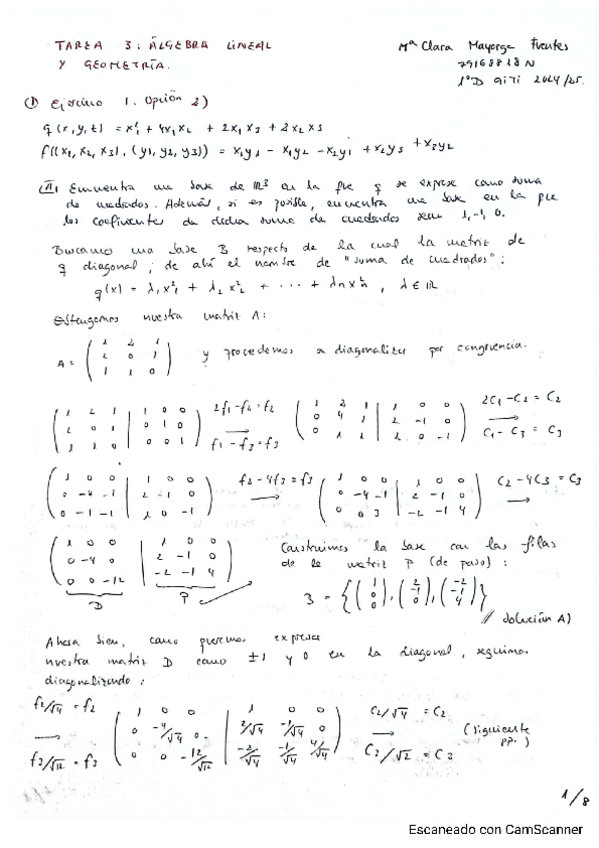 TAREA 3: ÁLGEBRA LINEAL
Y GEOMETRÍA.
Mª Clara Mayorga Fuentes
1ºD GITI 2024/25.
① Ejercicio 1. Opción 2)
q(x,y,z) = x₁² + 4x₁x₂ + 2x₁x₃ + 2x₂x₃
f((x₁,x₂,x₃),(y₁,y₂,y₃)) =
Encuentra una base de ℝ³ en la que q se exprese como suma
de cuadrados. Además, si es posible, encuentra una base en la que
los coeficientes de dicha suma de cuadrados sean 1,-1,0.
Buscamos una base B respecto de la cual la matriz de
q diagonal, de ahí el nombre de "suma de cuadrados":
q(x) = λ₁x₁² + λ₂x₂² + ··· + λₙxₙ², λ ∈ ℝ
nuestra matriz A:
A = ( 1 2 1 / 2 0 1 / 1 1 0 ) y procedemos a diagonalizar por congruencia.
( 1 2 1 | 1 0 0 / 2 0 1 | 0 1 0 / 1 1 0 | 0 0 1 ) 2f₁-f₂=f₂ f₁-f₃=f₃ → ( 1 2 1 | 1 0 0 / 0 4 1 | 2 -1 0 / 0 1 1 | 1 0 -1 ) 2C₁-C₂=C₂ C₁-C₃=C₃ →
( 1 0 0 | 1 0 0 / 0 -4 -1 | 2 -1 0 / 0 -1 -1 | 1 0 -1 ) f₂-4f₃=f₃ → ( 1 0 0 | 1 0 0 / 0 -4 -1 | 2 -1 0 / 0 0 3 | -2 -1 4 ) C₂-4C₃=C₃ →
( 1 0 0 | 1 0 0 / 0 -4 0 | 2 -1 0 / 0 0 -12 | -2 -1 4 )
D P
Construimos la base con las filas
de la matriz P (de paso):
B = {(1 0 0), (2 -1 0), (-2 -1 4)}
// Solución A)
Ahora bien, como queremos expresar
nuestra matriz D como ±1 y 0 en la diagonal, seguimos
diagonalizando:
f₂/√4 = f₂ → f₃/√12 = f₃ C₂/√4 = C₂ → C₃/√12 = C₃
(siguiente
pp.)
1/8
Escaneado con CamScanner